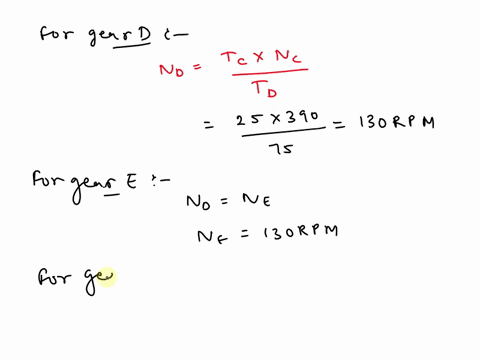 For gear D :-
N_D = T_C × N_C / T_D
= 25 × 390 / 75 = 130 RPM
For gear E :-
N_D = N_E
N_E = 130 RPM
For ge